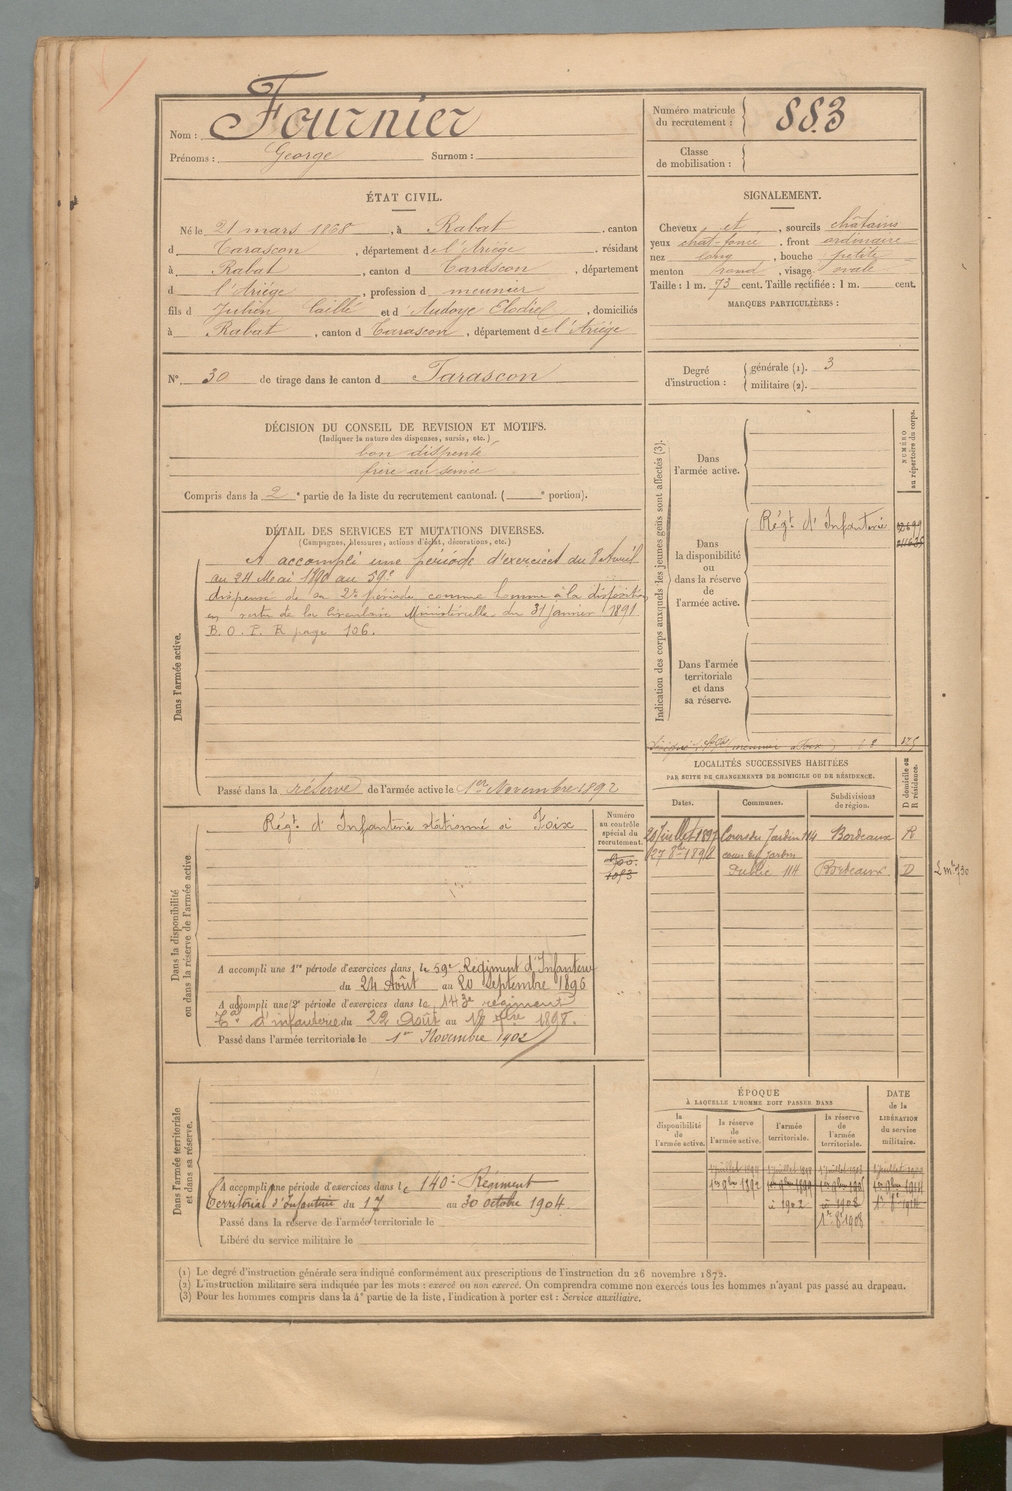 Nom : Fournier
Prénoms : George Surnom :
Numéro matricule du recrutement : 883
Classe de mobilisation :
ÉTAT CIVIL.
Né le 21 mars 1868, à Rabat, canton
d Tarascon, département de l'Ariège, résidant
à Rabat, canton d Tarascon, département
d l'Ariège, profession d meunier
fils d Julien et d Audoye Elodie, domiciliés
à Rabat, canton d Tarascon, département de l'Ariège
SIGNALEMENT.
Cheveux et, sourcils châtains
yeux chât-foncé, front ordinaire
nez long, bouche petite
menton rond, visage ovale
Taille : 1 m. 73 cent. Taille rectifiée : 1 m. cent.
MARQUES PARTICULIÈRES :
N° 30 de tirage dans le canton d Tarascon
Degré d'instruction : générale (1). 3
militaire (2).
DÉCISION DU CONSEIL DE REVISION ET MOTIFS.
(Indiquer la nature des dispenses, sursis, etc.)
bon dispensé
frère au service
Compris dans la 2e partie de la liste du recrutement cantonal. ( e portion).
DÉTAIL DES SERVICES ET MUTATIONS DIVERSES.
(Campagnes, blessures, actions d'éclat, décorations, etc.)
Dans l'armée active.
A accompli une période d'exercices du Avril
au 24 Mai 1890 au 59e
dispensé de sa 2e période comme homme à la disposition
en vertu de la Circulaire Ministérielle du 31 janvier 1891
B. O. P. R page 106.
Passé dans la réserve de l'armée active le 1er Novembre 1892
Indication des corps auxquels les jeunes gens sont affectés (3).
NUMÉRO au répertoire du corps.
Dans l'armée active.
Dans la disponibilité ou dans la réserve de l'armée active.
Régt d'Infanterie
Dans l'armée territoriale et dans sa réserve.
LOCALITÉS SUCCESSIVES HABITÉES
PAR SUITE DE CHANGEMENTS DE DOMICILE OU DE RÉSIDENCE.
Dates. Communes. Subdivisions de région. D domicile ou R résidence.
Juillet 1897 Cours du Jardin 114 Bordeaux R
27 8bre 1898 cours du Jardin
Public 114 Bordeaux D
Dans la disponibilité ou dans la réserve de l'armée active.
Régt d'Infanterie stationné à Foix
Numéro au contrôle spécial du recrutement.
A accompli une 1re période d'exercices dans le 59e Régiment d'Infanterie
du 24 Août au 20 septembre 1896
A accompli une 2e période d'exercices dans le 143e régiment
d'infanterie du 22 Août au 18 7bre 1898.
Passé dans l'armée territoriale le 1er Novembre 1902
Dans l'armée territoriale et dans sa réserve.
A accompli une période d'exercices dans le 140e Régiment
Territorial d'Infanterie du 17 au 30 octobre 1904.
Passé dans la réserve de l'armée territoriale le
Libéré du service militaire le
ÉPOQUE
À LAQUELLE L'HOMME DOIT PASSER DANS
la disponibilité de l'armée active. la réserve de l'armée active. l'armée territoriale. la réserve de l'armée territoriale. DATE de la LIBÉRATION du service militaire.
1er 9bre 1892
à 1902
(1) Le degré d'instruction générale sera indiqué conformément aux prescriptions de l'instruction du 26 novembre 1872.
(2) L'instruction militaire sera indiquée par les mots : exercé ou non exercé. On comprendra comme non exercés tous les hommes n'ayant pas passé au drapeau.
(3) Pour les hommes compris dans la 4e partie de la liste, l'indication à porter est : Service auxiliaire.